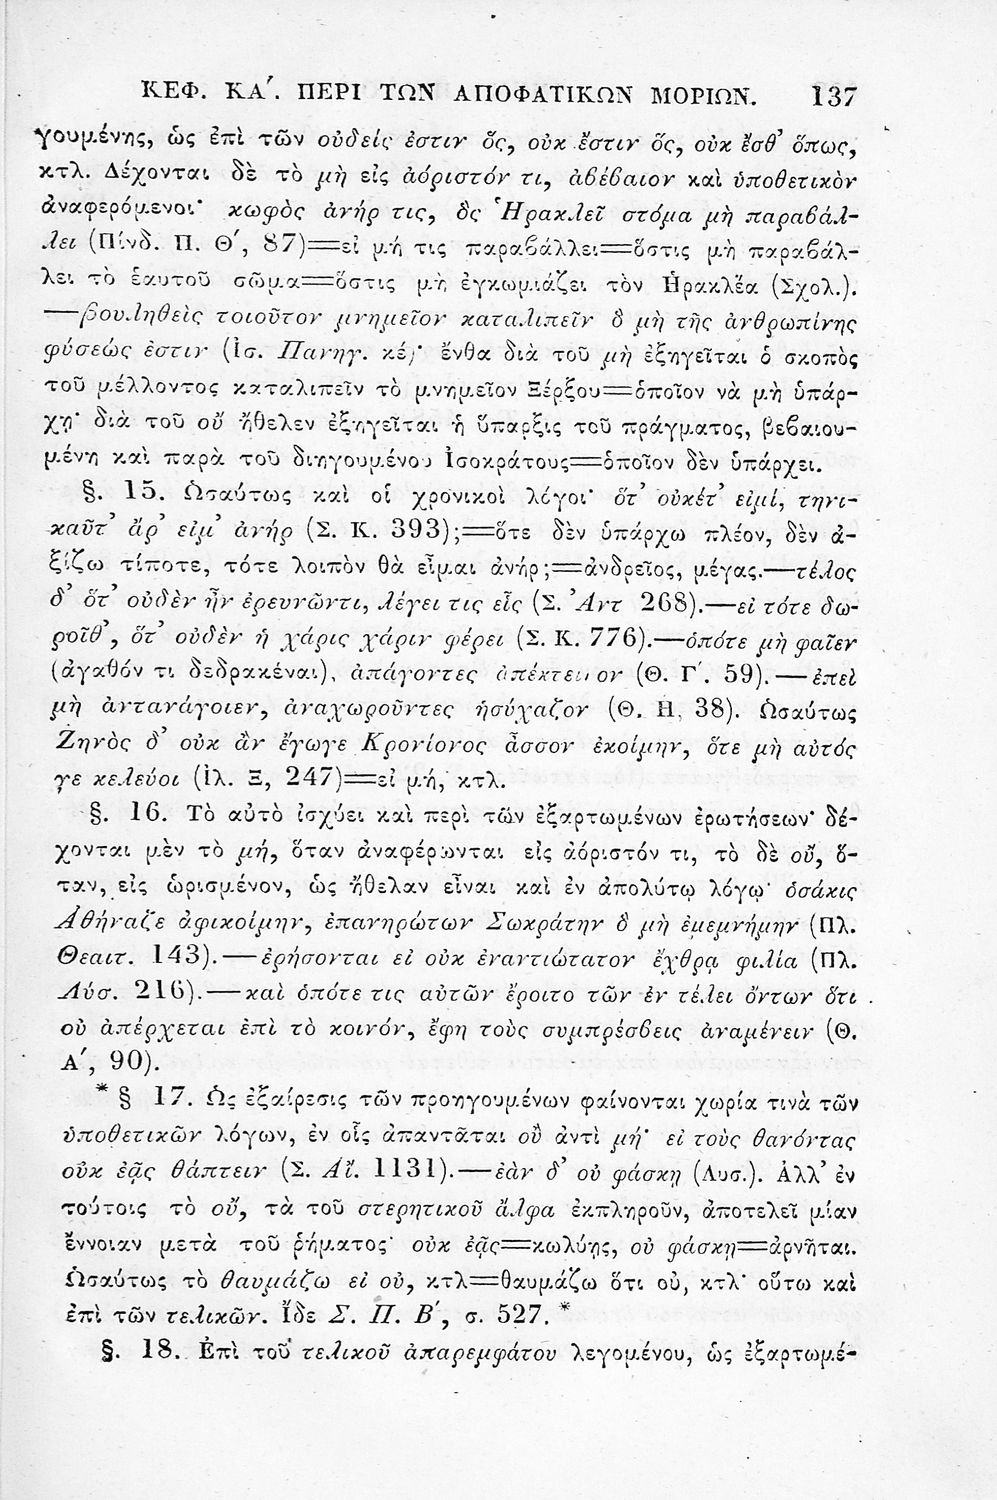 ΚΕΦ. ΚΑ΄. ΠΕΡΙ ΤΩΝ ΑΠΟΦΑΤΙΚΩΝ ΜΟΡΙΩΝ. 137
γουμένης, ὡς ἐπὶ τῶν οὐδείς ἐστιν ὅς, οὐκ ἔστιν ὅς, οὐκ ἔσθ᾽ ὅπως,
κτλ. Δέχονται δὲ τὸ μὴ εἰς ἀόριστόν τι, ἀβέβαιον καὶ ὑποθετικὸν
ἀναφερόμενοι· κωφὸς ἀνήρ τις, ὃς Ἡρακλεῖ στόμα μὴ παραβάλ-
λει (Πίνδ. Π. Θ΄, 87)=εἰ μή τις παραβάλλει=ὅστις μὴ παραβάλ-
λει τὸ ἑαυτοῦ σῶμα=ὅστις μὴ ἐγκωμιάζει τὸν Ἡρακλέα (Σχολ.).
—βουληθεὶς τοιοῦτον μνημεῖον καταλιπεῖν ὃ μὴ τῆς ἀνθρωπίνης
φύσεώς ἐστιν (Ἰσ. Πανηγ. κέ)· ἔνθα διὰ τοῦ μὴ ἐξηγεῖται ὁ σκοπὸς
τοῦ μέλλοντος καταλιπεῖν τὸ μνημεῖον Ξέρξου=ὁποῖον νὰ μὴ ὑπάρ-
χῃ· διὰ τοῦ οὔ ἤθελεν ἐξηγεῖται ἡ ὕπαρξις τοῦ πράγματος, βεβαιου-
μένη καὶ παρὰ τοῦ διηγουμένου Ἰσοκράτους=ὁποῖον δὲν ὑπάρχει.
§. 15. Ὡσαύτως καὶ οἱ χρονικοὶ λόγοι· ὅτ᾽ οὐκέτ᾽ εἰμί, τηνι-
καῦτ᾽ ἄρ᾽ εἰμ᾽ ἀνήρ (Σ. Κ. 393);=ὅτε δὲν ὑπάρχω πλέον, δὲν ἀ-
ξίζω τίποτε, τότε λοιπὸν θὰ εἶμαι ἀνήρ;=ἀνδρεῖος, μέγας.—τέλος
δ᾽ ὅτ᾽ οὐδὲν ἦν ἐρευνῶντι, λέγει τις εἷς (Σ. Ἀντ 268).—εἰ τότε δω-
ροῖθ᾽, ὅτ᾽ οὐδὲν ἡ χάρις χάριν φέρει (Σ. Κ. 776).—ὁπότε μὴ φαῖεν
(ἀγαθόν τι δεδρακέναι), ἀπάγοντες ἀπέκτεινον (Θ. Γ΄. 59).—ἐπεὶ
μὴ ἀντανάγοιεν, ἀναχωροῦντες ἡσύχαζον (Θ. Η, 38). Ὡσαύτως
Ζηνὸς δ᾽ οὐκ ἂν ἔγωγε Κρονίονος ἆσσον ἱκοίμην, ὅτε μὴ αὐτός
γε κελεύοι (Ἰλ. Ξ, 247)=εἰ μή, κτλ.
§. 16. Τὸ αὐτὸ ἰσχύει καὶ περὶ τῶν ἐξαρτωμένων ἐρωτήσεων· δέ-
χονται μὲν τὸ μή, ὅταν ἀναφέρωνται εἰς ἀόριστόν τι, τὸ δὲ οὔ, ὅ-
ταν, εἰς ὡρισμένον, ὡς ἤθελαν εἶναι καὶ ἐν ἀπολύτῳ λόγῳ· ὁσάκις
Ἀθήναζε ἀφικοίμην, ἐπανηρώτων Σωκράτην ὃ μὴ ἐμεμνήμην (Πλ.
Θεαιτ. 143).—ἐρήσονται εἰ οὐκ ἐναντιώτατον ἔχθρᾳ φιλία (Πλ.
Λύσ. 216).—καὶ ὁπότε τις αὐτῶν ἔροιτο τῶν ἐν τέλει ὄντων ὅτι
οὐ ἀπέρχεται ἐπὶ τὸ κοινόν, ἔφη τοὺς συμπρέσβεις ἀναμένειν (Θ.
Α΄, 90).
* § 17. Ὡς ἐξαίρεσις τῶν προηγουμένων φαίνονται χωρία τινὰ τῶν
ὑποθετικῶν λόγων, ἐν οἷς ἀπαντᾶται οὐ ἀντὶ μή· εἰ τοὺς θανόντας
οὐκ ἐᾷς θάπτειν (Σ. Αἴ. 1131).—ἐὰν δ᾽ οὐ φάσκῃ (Λυσ.). Ἀλλ᾽ ἐν
τούτοις τὸ οὔ, τὰ τοῦ στερητικοῦ ἄλφα ἐκπληροῦν, ἀποτελεῖ μίαν
ἔννοιαν μετὰ τοῦ ῥήματος· οὐκ ἐᾷς=κωλύῃς, οὐ φάσκῃ=ἀρνῆται.
Ὡσαύτως τὸ θαυμάζω εἰ οὐ, κτλ=θαυμάζω ὅτι οὐ, κτλ· οὕτω καὶ
ἐπὶ τῶν τελικῶν. Ἴδε Σ. Π. Β΄, σ. 527. *
§. 18. Ἐπὶ τοῦ τελικοῦ ἀπαρεμφάτου λεγομένου, ὡς ἐξαρτωμέ-